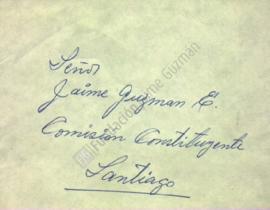 Señor
Jaime Guzman E.
Comisión Constituyente
Santiago
Fundación Jaime Guzmán